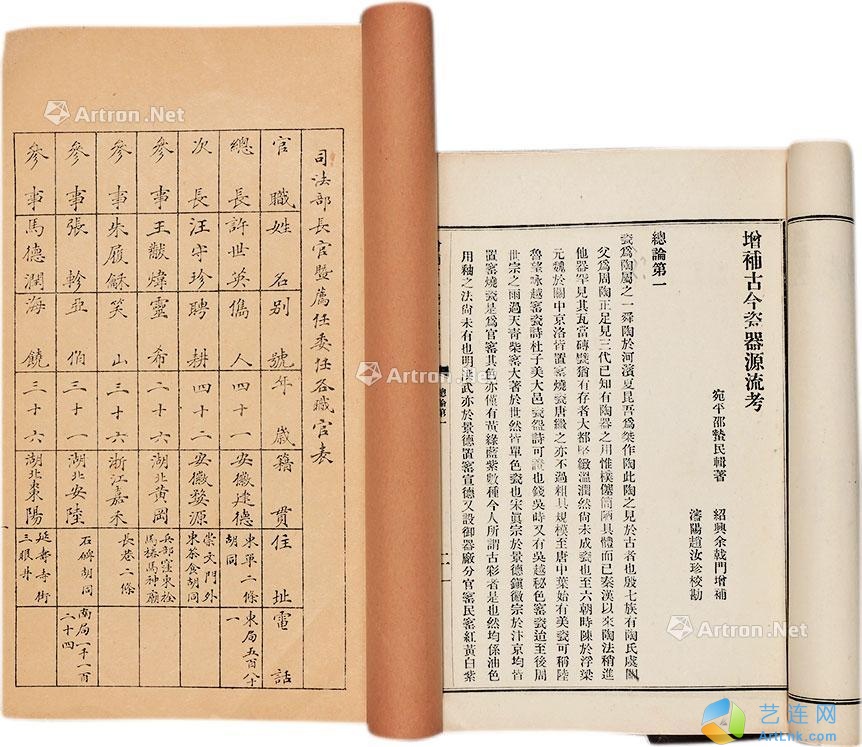 增補古今瓷器源流考
宛平邵蟄民輯著
紹興余戟門增補
瀋陽趙汝珍校勘
總論第一
瓷爲陶屬之一舜陶於河濱夏昆吾爲桀作陶此陶之見於古者也殷七族有陶氏虞閼
父爲周陶正足見三代已知有陶器之用惟樸僿簡陋具體而已秦漢以來陶法稍進
他器罕見其瓦當磚甓猶有存者大都堅緻溫潤然尚未成瓷也至六朝時陳於浮梁
元魏於關中京洛皆置窰燒瓷唐繼之亦不過粗具規模至唐中葉始有美瓷可稱陸
魯望詠越窰瓷詩杜子美大邑瓷盌詩可證也錢吳時又有吳越秘色窰瓷迨至後周
世宗之雨過天靑柴窰大著於世然皆單色瓷也宋眞宗於景德鎭徽宗於汴京均皆
置窰燒瓷是爲官窰其色亦僅有黃綠藍紫數種今人所謂古彩者是也然均係油色
用釉之法尙未有也明洪武亦於景德置窰宣德又設御器廠分官窰民窰紅黃白紫
總論第一
司法部長官暨薦任委任各職官表
官職 姓名 別號 年歲 籍貫 住址 電話
總長 許世英 儁人 四十一 安徽建德 東單二條胡同 東局五百八十一
次長 汪守珍 聘耕 四十二 安徽婺源 崇文門外東茶食胡同
參事 王黻煒 靈希 二十六 湖北黃岡 兵部窪東栓馬樁馬神廟
參事 朱履龢 笑山 三十六 浙江嘉禾 長巷二條
參事 張軫 亞伯 三十一 湖北安陸 石碑胡同 南局一千一百二十四
參事 馬德潤 海饒 三十六 湖北棗陽 延壽寺街三眼井
Artron.Net
Artron.Net
Artron.Net
Artron.Net
艺连网
ArtLnk.com